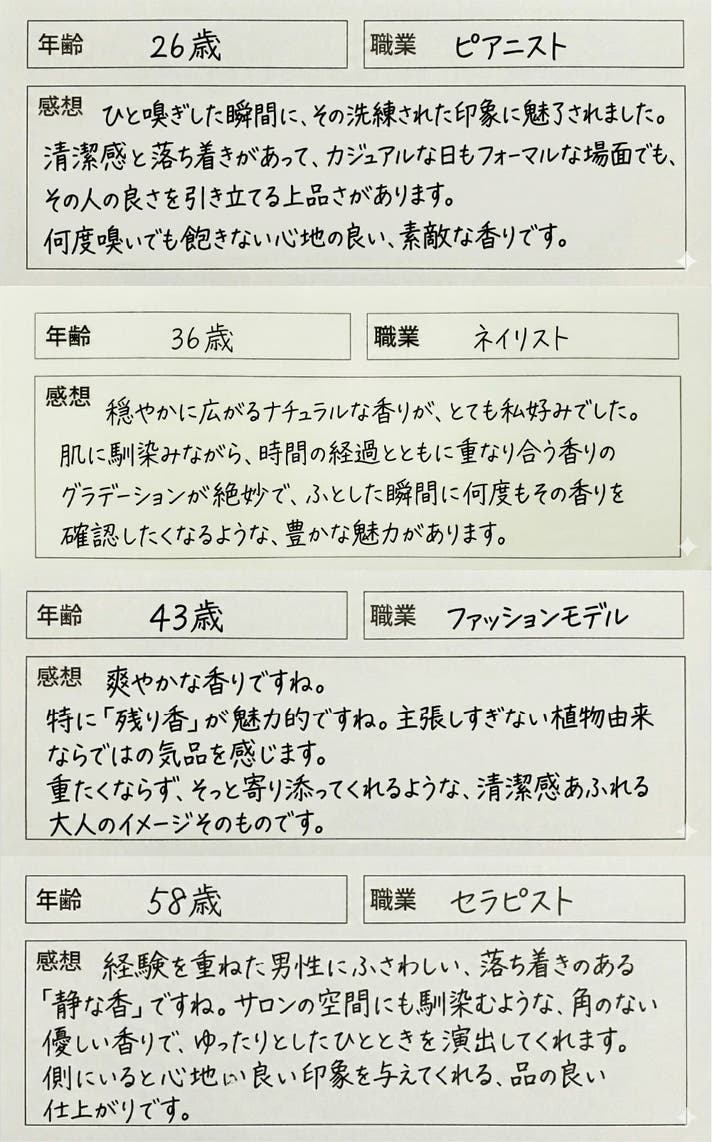 年齢 26歳 職業 ピアニスト
感想 ひと嗅ぎした瞬間に、その洗練された印象に魅了されました。
清潔感と落ち着きがあって、カジュアルな日もフォーマルな場面でも、
その人の良さを引き立てる上品さがあります。
何度嗅いでも飽きない心地の良い、素敵な香りです。
年齢 36歳 職業 ネイリスト
感想 穏やかに広がるナチュラルな香りが、とても私好みでした。
肌に馴染みながら、時間の経過とともに重なり合う香りの
グラデーションが絶妙で、ふとした瞬間に何度もその香りを
確認したくなるような、豊かな魅力があります。
年齢 43歳 職業 ファッションモデル
感想 爽やかな香りですね。
特に「残り香」が魅力的ですね。主張しすぎない植物由来
ならではの気品を感じます。
重たくならず、そっと寄り添ってくれるような、清潔感あふれる
大人のイメージそのものです。
年齢 58歳 職業 セラピスト
感想 経験を重ねた男性にふさわしい、落ち着きのある
「静な香」ですね。サロンの空間にも馴染むような、角のない
優しい香りで、ゆったりとしたひとときを演出してくれます。
側にいると心地い良い印象を与えてくれる、品の良い
仕上がりです。